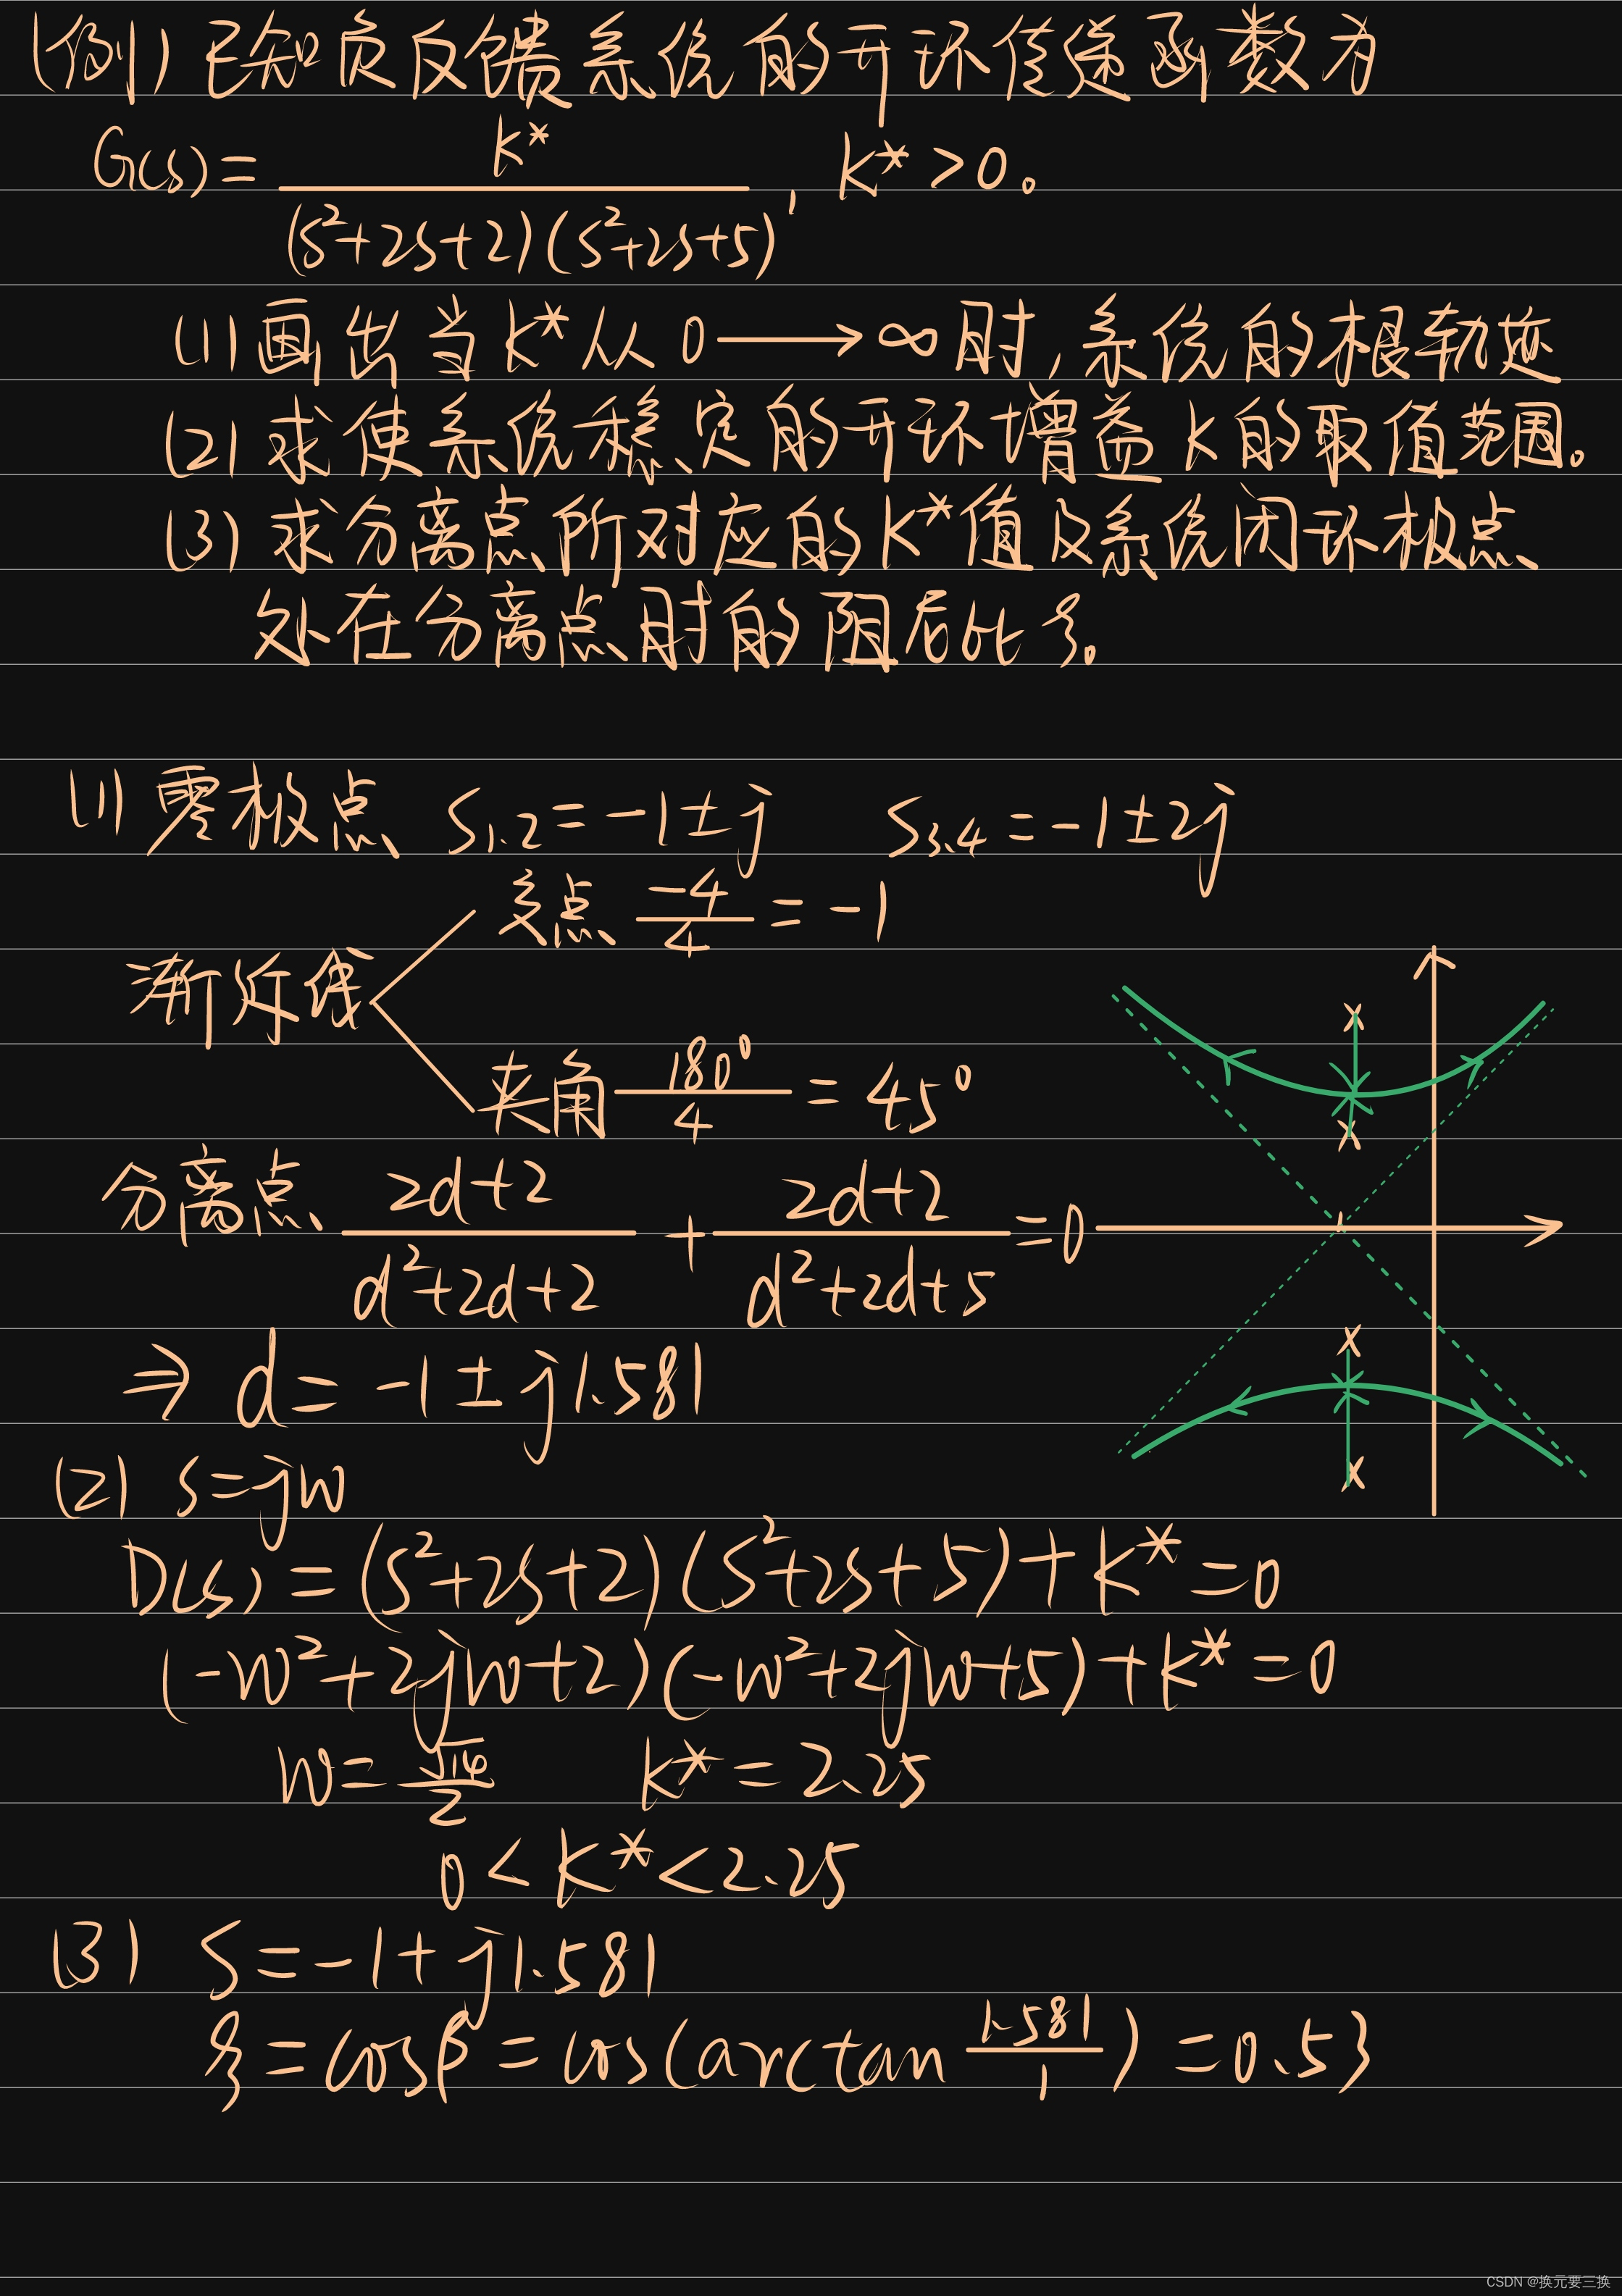 (例1) 已知负反馈系统的开环传递函数为
G(s) = K* / (s²+2s+2)(s²+2s+5) , K*>0。
(1) 画出当K*从0⟶∞时,系统的根轨迹
(2) 求使系统稳定的开环增益K的取值范围。
(3) 求分离点所对应的K*值及系统闭环极点
处在分离点时的阻尼比ξ。
(1) 零极点 S1.2=-1±j S3.4=-1±2j
交点 -4/4 = -1
渐近线
夹角 180°/4 = 45°
分离点 2d+2/d²+2d+2 + 2d+2/d²+2d+5 =0
⇒ d= -1±j1.581
(2) s=jw
D(s)=(s²+2s+2)(s²+2s+5)+K*=0
(-w²+2jw+2)(-w²+2jw+5)+K*=0
K*=2.25
0<K*<2.25
(3) S=-1+j1.581
ξ=cosβ=cos(arctan 1.581/1)=0.53
CSDN @换元要三换